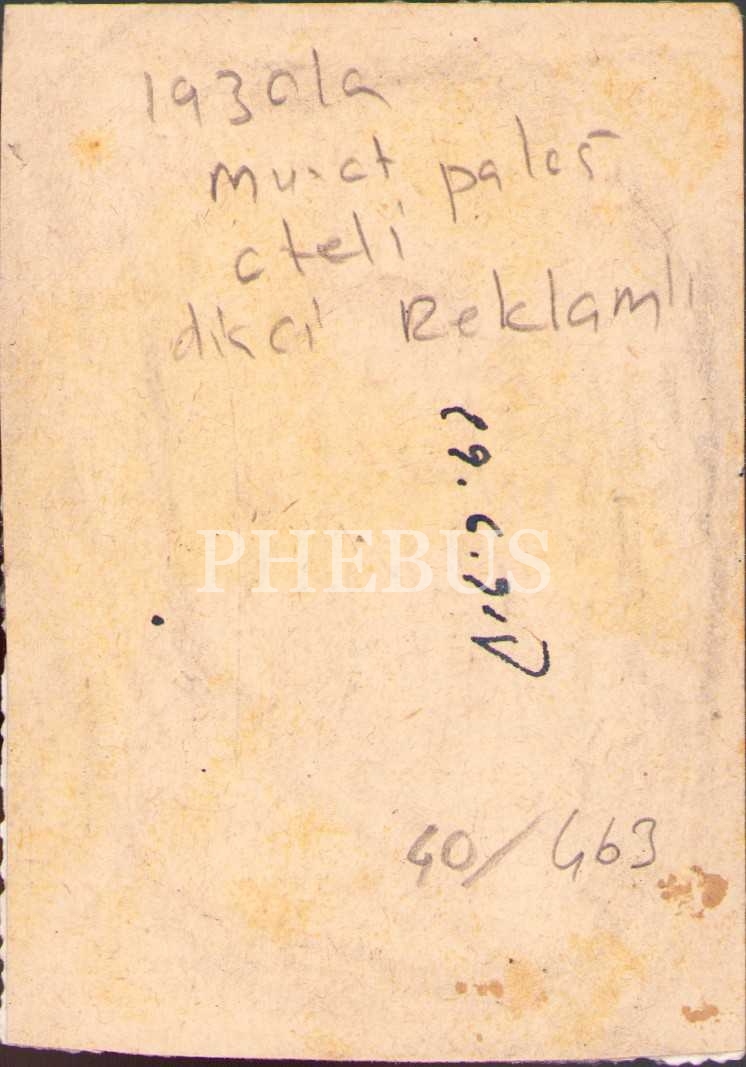 1930la
murat palas
oteli
dikai Reklamlı
PHEBUS
40/463